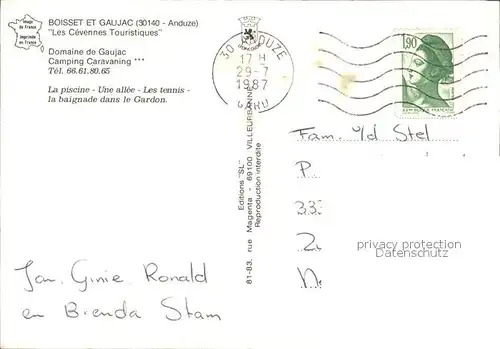 Image
de France
Imprimée
en France
BOISSET ET GAUJAC (30140 - Anduze)
"Les Cévennes Touristiques"
Domaine de Gaujac
Camping Caravaning ***
Tél. 66.61.80.65
La piscine - Une allée - Les tennis -
la baignade dans le Gardon.
30 ANDUZE
17 H
29-7
1987
GARD
1,90
Editions "SL"
81-83, rue Magenta - 69100 VILLEURBANNE
Reproduction interdite
Fam. v/d Stel
P
333
2
privacy protection
Datenschutz
Jan, Ginie Ronald
en Brenda Stam